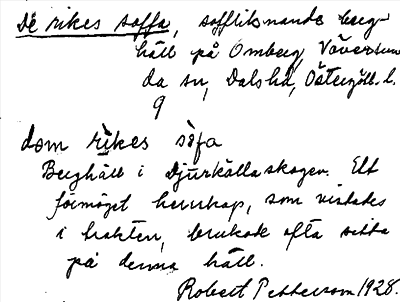 De rikes soffa, soffliknande berg-
häll på Omberg, Väversun
da sn, Dalshd, Östergötl. l.
9
dom rikes sòfa
Berghäll i Djurkällaskogen. Ett
förmöget herrskap, som vistades
i trakten, brukade ofta sitta
på denna häll.
Robert Pettersson 1928.